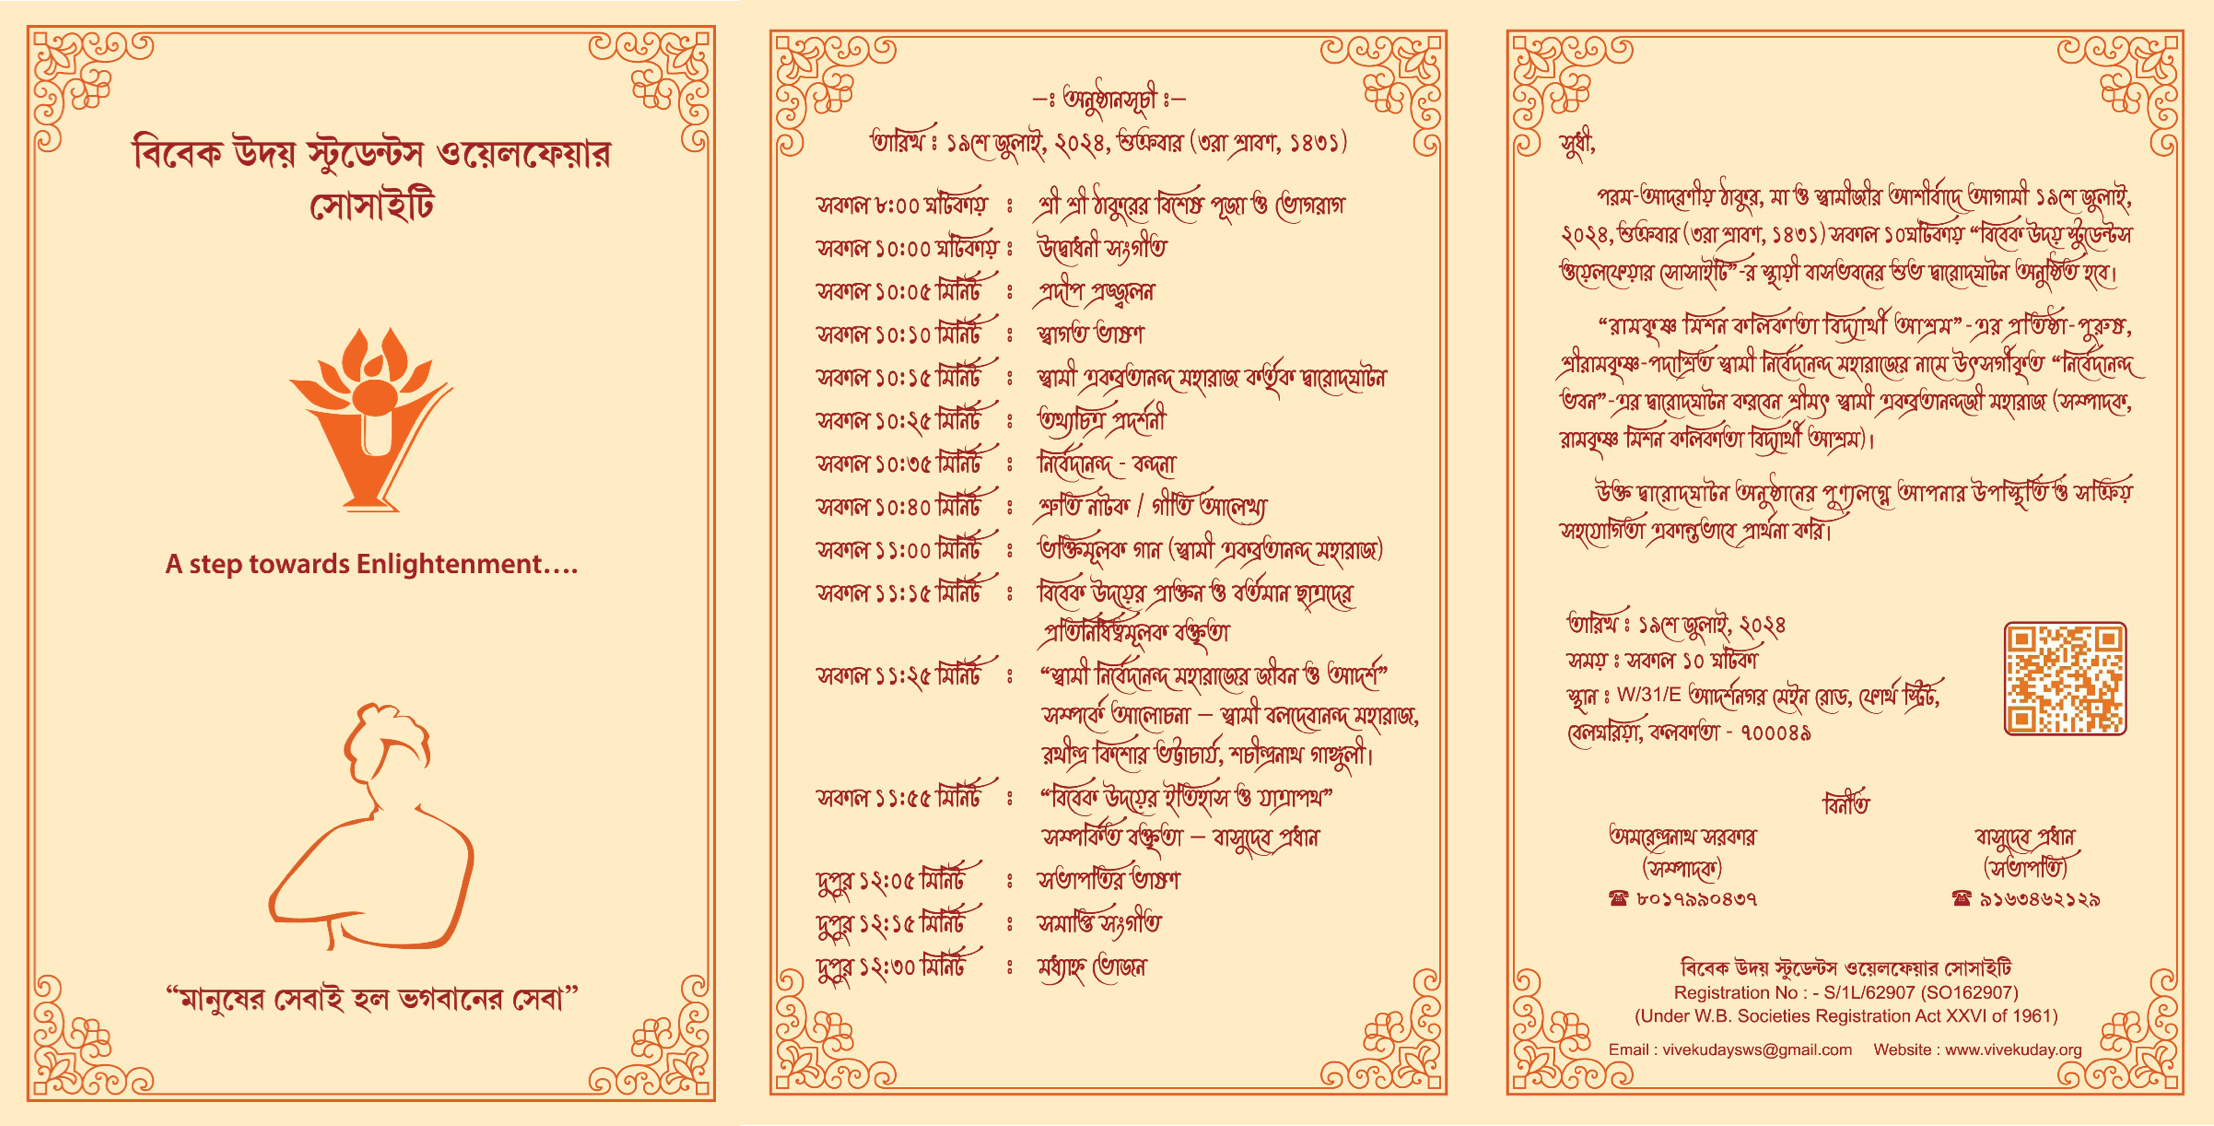 বিবেক উদয় স্টুডেন্টস ওয়েলফেয়ার
সোসাইটি
A step towards Enlightenment....
“মানুষের সেবাই হল ভগবানের সেবা”
–ঃ অনুষ্ঠানসূচী ঃ–
তারিখ ঃ ১৯শে জুলাই, ২০২৪, শুক্রবার (৩রা শ্রাবণ, ১৪৩১)
সকাল ৮:০০ ঘটিকায় ঃ শ্রী শ্রী ঠাকুরের বিশেষ পূজা ও ভোগরাগ
সকাল ১০:০০ ঘটিকায় ঃ উদ্বোধনী সংগীত
সকাল ১০:০৫ মিনিট ঃ প্রদীপ প্রজ্জ্বলন
সকাল ১০:১০ মিনিট ঃ স্বাগত ভাষণ
সকাল ১০:১৫ মিনিট ঃ স্বামী একব্রতানন্দ মহারাজ কর্তৃক দ্বারোদঘাটন
সকাল ১০:২৫ মিনিট ঃ তথ্যচিত্র প্রদর্শনী
সকাল ১০:৩৫ মিনিট ঃ নির্বেদানন্দ - বন্দনা
সকাল ১০:৪০ মিনিট ঃ শ্রুতি নাটক / গীতি আলেখ্য
সকাল ১১:০০ মিনিট ঃ ভক্তিমূলক গান (স্বামী একব্রতানন্দ মহারাজ)
সকাল ১১:১৫ মিনিট ঃ বিবেক উদয়ের প্রাক্তন ও বর্তমান ছাত্রদের
প্রতিনিধিত্বমূলক বক্তৃতা
সকাল ১১:২৫ মিনিট ঃ “স্বামী নির্বেদানন্দ মহারাজের জীবন ও আদর্শ”
সম্পর্কে আলোচনা – স্বামী বলদেবানন্দ মহারাজ,
রথীন্দ্র কিশোর ভট্টাচার্য, শচীন্দ্রনাথ গাঙ্গুলী।
সকাল ১১:৫৫ মিনিট ঃ “বিবেক উদয়ের ইতিহাস ও যাত্রাপথ”
সম্পর্কিত বক্তৃতা – বাসুদেব প্রধান
দুপুর ১২:০৫ মিনিট ঃ সভাপতির ভাষণ
দুপুর ১২:১৫ মিনিট ঃ সমাপ্তি সংগীত
দুপুর ১২:৩০ মিনিট ঃ মধ্যাহ্ন ভোজন
সুধী,
পরম-আদরণীয় ঠাকুর, মা ও স্বামীজীর আশীর্বাদে আগামী ১৯শে জুলাই,
২০২৪, শুক্রবার (৩রা শ্রাবণ, ১৪৩১) সকাল ১০ঘটিকায় “বিবেক উদয় স্টুডেন্টস
ওয়েলফেয়ার সোসাইটি”-র স্থায়ী বাসভবনের শুভ দ্বারোদঘাটন অনুষ্ঠিত হবে।
“রামকৃষ্ণ মিশন কলিকাতা বিদ্যার্থী আশ্রম”-এর প্রতিষ্ঠা-পুরুষ,
শ্রীরামকৃষ্ণ-পদাশ্রিত স্বামী নির্বেদানন্দ মহারাজের নামে উৎসর্গীকৃত “নির্বেদানন্দ
ভবন”-এর দ্বারোদঘাটন করবেন শ্রীমৎ স্বামী একব্রতানন্দজী মহারাজ (সম্পাদক,
রামকৃষ্ণ মিশন কলিকাতা বিদ্যার্থী আশ্রম)।
উক্ত দ্বারোদঘাটন অনুষ্ঠানের পুণ্যলগ্নে আপনার উপস্থিতি ও সক্রিয়
সহযোগিতা একান্তভাবে প্রার্থনা করি।
তারিখ ঃ ১৯শে জুলাই, ২০২৪
সময় ঃ সকাল ১০ ঘটিকা
স্থান ঃ W/31/E আদর্শনগর মেইন রোড, ফোর্থ স্ট্রিট,
বেলঘরিয়া, কলকাতা - ৭০০০৪৯
বিনীত
অমরেন্দ্রনাথ সরকার বাসুদেব প্রধান
(সম্পাদক) (সভাপতি)
☎ ৮০১৭৯৯০৪৩৭ ☎ ৯১৬৩৪৬২১২৯
বিবেক উদয় স্টুডেন্টস ওয়েলফেয়ার সোসাইটি
Registration No : - S/1L/62907 (SO162907)
(Under W.B. Societies Registration Act XXVI of 1961)
Email : vivekudaysws@gmail.com Website : www.vivekuday.org